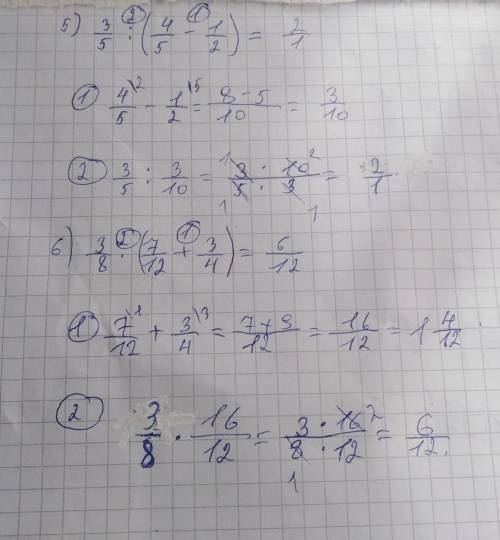 5) 3/5 : (4/5 - 1/2) = 2/1
① 4/5 \2 - 1/2 \5 = 8-5/10 = 3/10
② 3/5 : 3/10 = 3 · 10/5 · 3 = 2/1
6) 3/8 · (7/12 + 3/4) = 6/12
① 7/12 \1 + 3/4 \3 = 7+9/12 = 16/12 = 1 4/12
② 3/8 · 16/12 = 3 · 16/8 · 12 = 6/12.